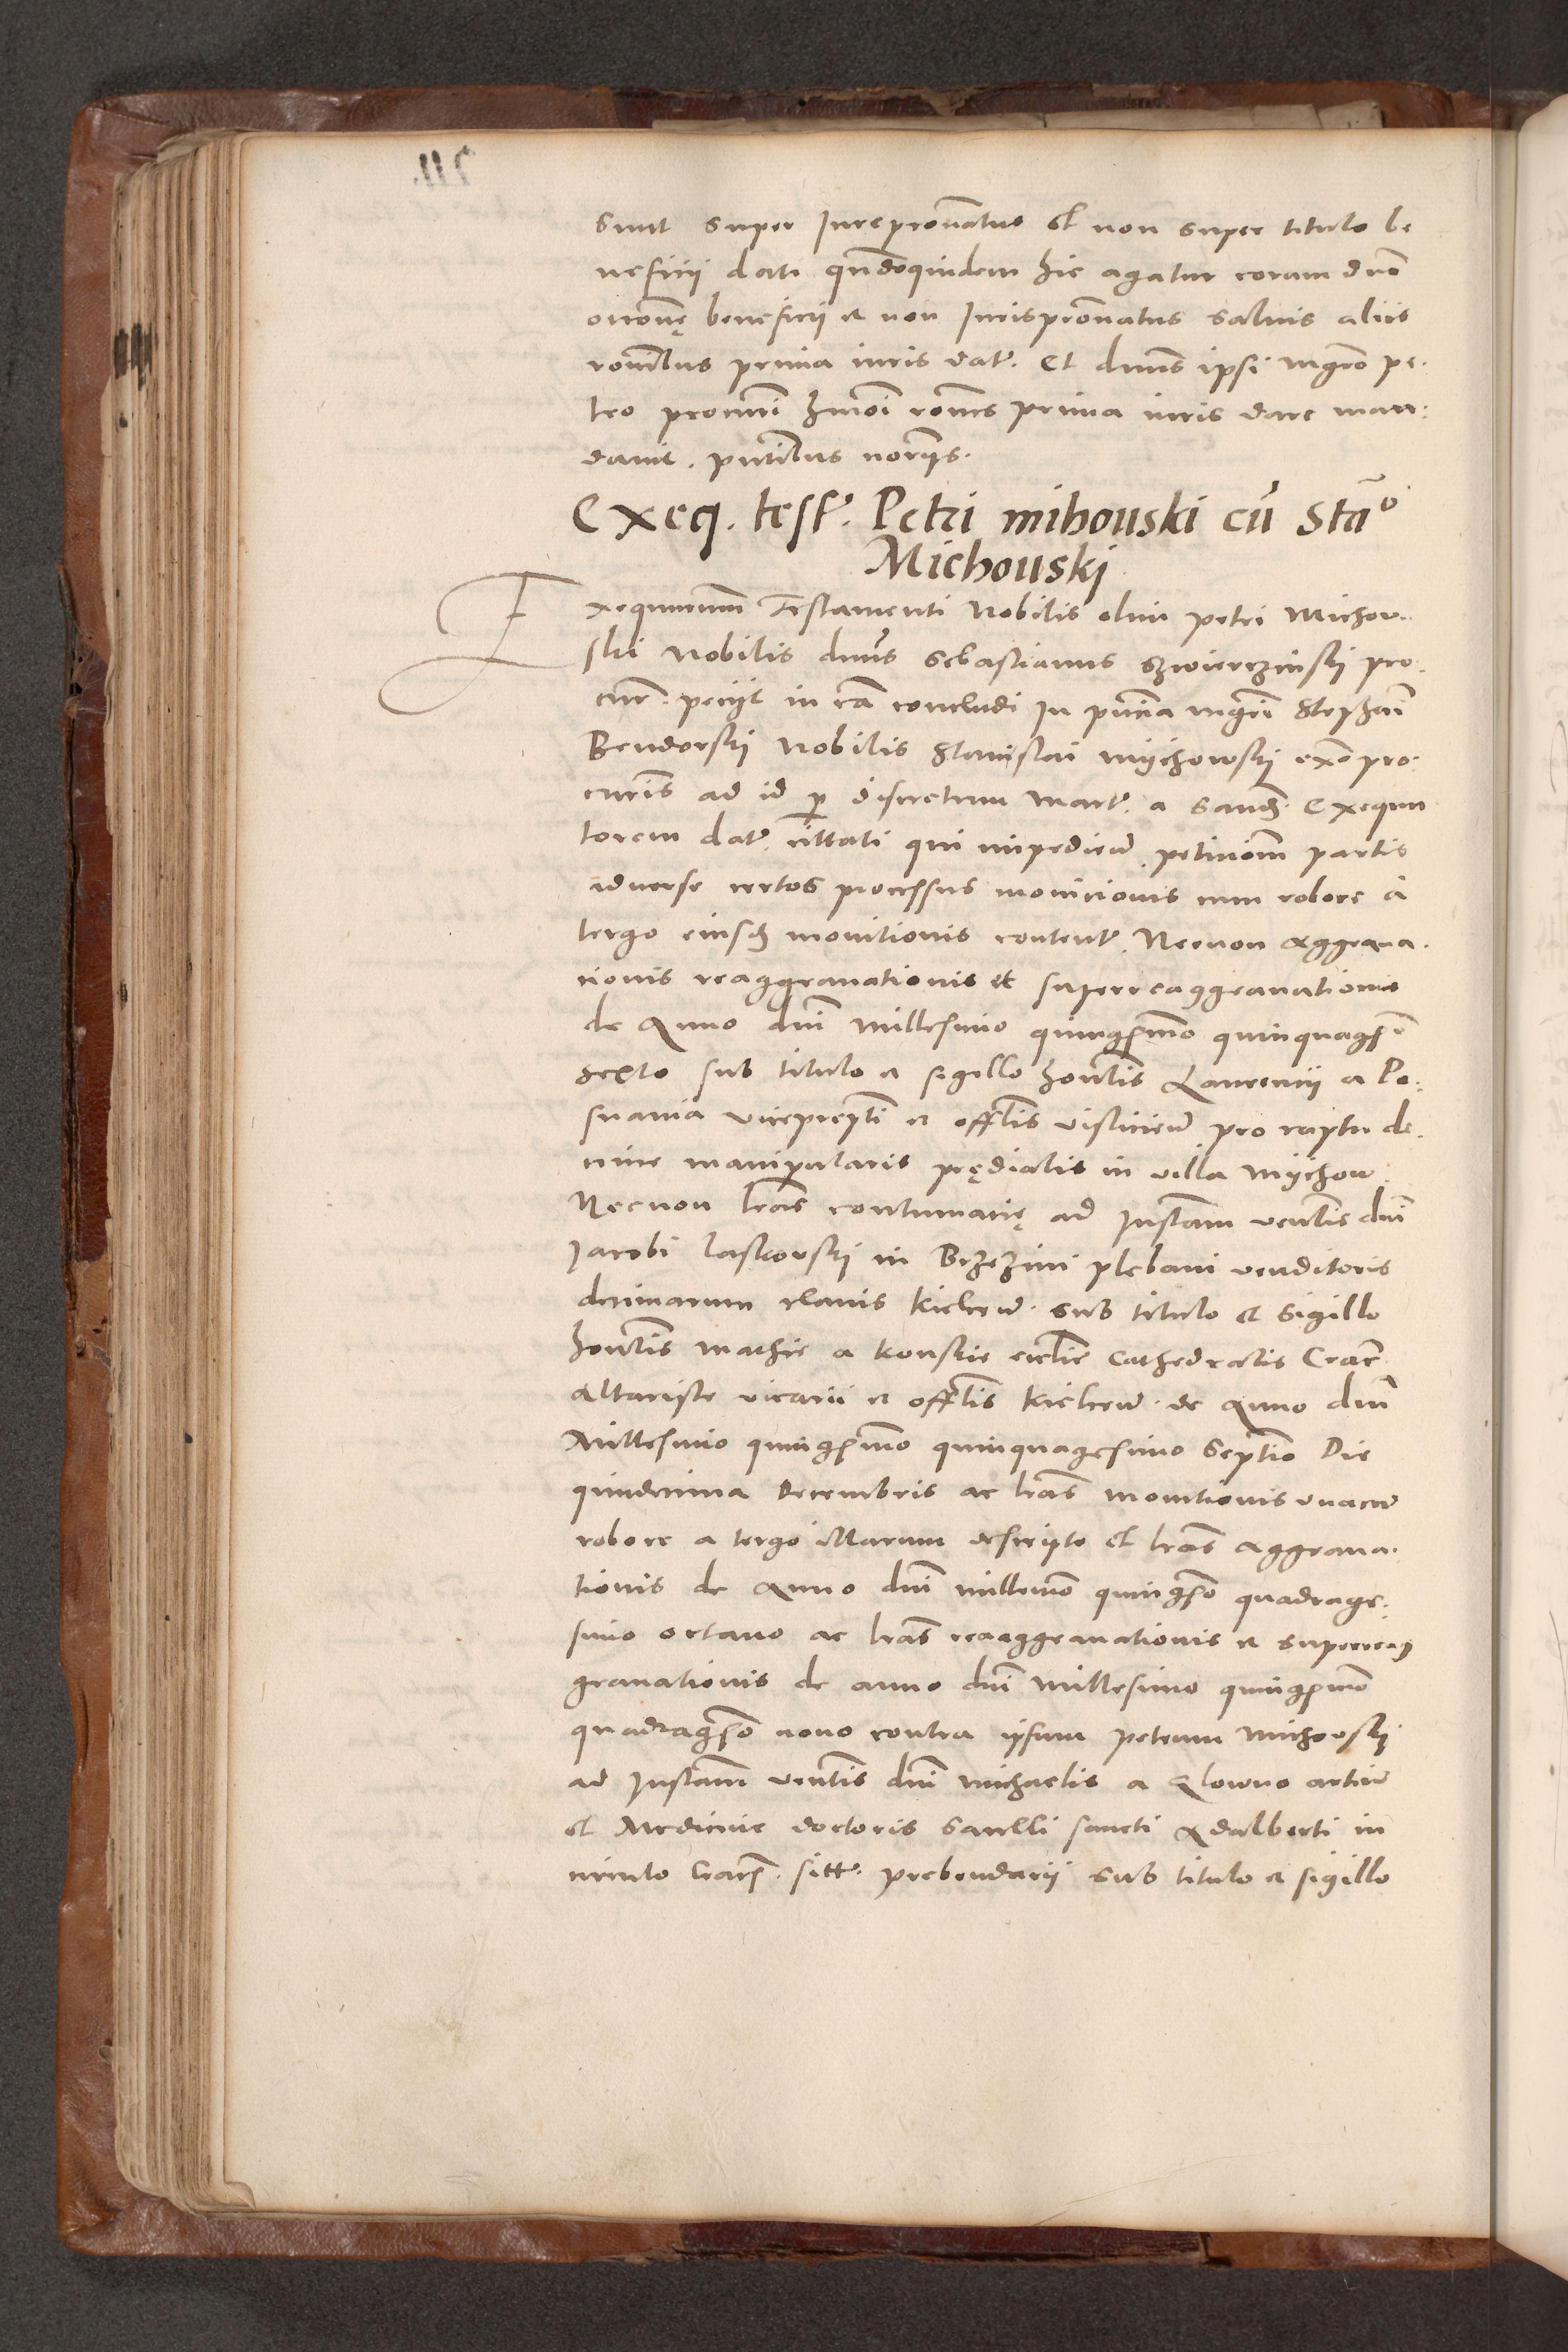 sunt super Jurepronatus et non super titulo be
neficii dati qndoquidem hic agatur coram dno
beneficii et non Jurispronatus saluis aliis
ronibus prima iuris dat. Et dnus ipsi mgro pe.
tro procuri hmoi rones prima iuris dare man:
dauit. pntibus noriis.
Exeq. test. Petri mihouski cū Sta°
Michouski
Exequutorum Testamenti Nobilis olim petri Michow.
ski Nobilis dnus Sebastianus Szwierczinskij pro.
cur. petijt in ca concludi In pntia mgri Stephani
Bendorskij Nobilis Stanislai mijchowskij ex° pro.
curis ad id p discretum mart. a Sand. Exequu
torem dat. cittati qui impedieū petitionem partis
aduerse certos processus monicionis cum robore a
tergo eiusd monitionis content. Necnon Aggraua.
cionis reaggrauationis et superreaggrauationis
de Anno dni millesimo quingesmo quinquages°
sexto sub titulo et sigillo honlis Laurencii a Po.
snania viceprepti et offlis visliciens pro raptu de.
cime manipularis prędialis in villa mijchow
Necnon lras contumacię ad Instam ventlis dni
Jacobi laskowskij in Brzezini plebani venditoris
decimarum clauis kielceū. sub titulo et sigillo
honlis mathie a konskie ecclie Cathedralis Crac
Altariste vicarii et offlis kielceū. de Anno dni
Millesimo quingesmo quinquagesimo Septimo Die
quindecima decembris ac lras monitionis unacū
robore a tergo illarum descripto et lras Aggraua.
tionis de Anno dni millesimo quingeso quadrage.
simo octauo ac lras reaggrauationis et superreag
grauationis de anno dni Millesimo quingesmo
quadrageso nono contra ipsum petrum michowskij
ad Instam ventlis dni michaelis a Glowno artiū
et Medicine doctoris Sacelli sancti Adalberti in
circulo Crac. sitt. prebendarii sub titulo et sigillo